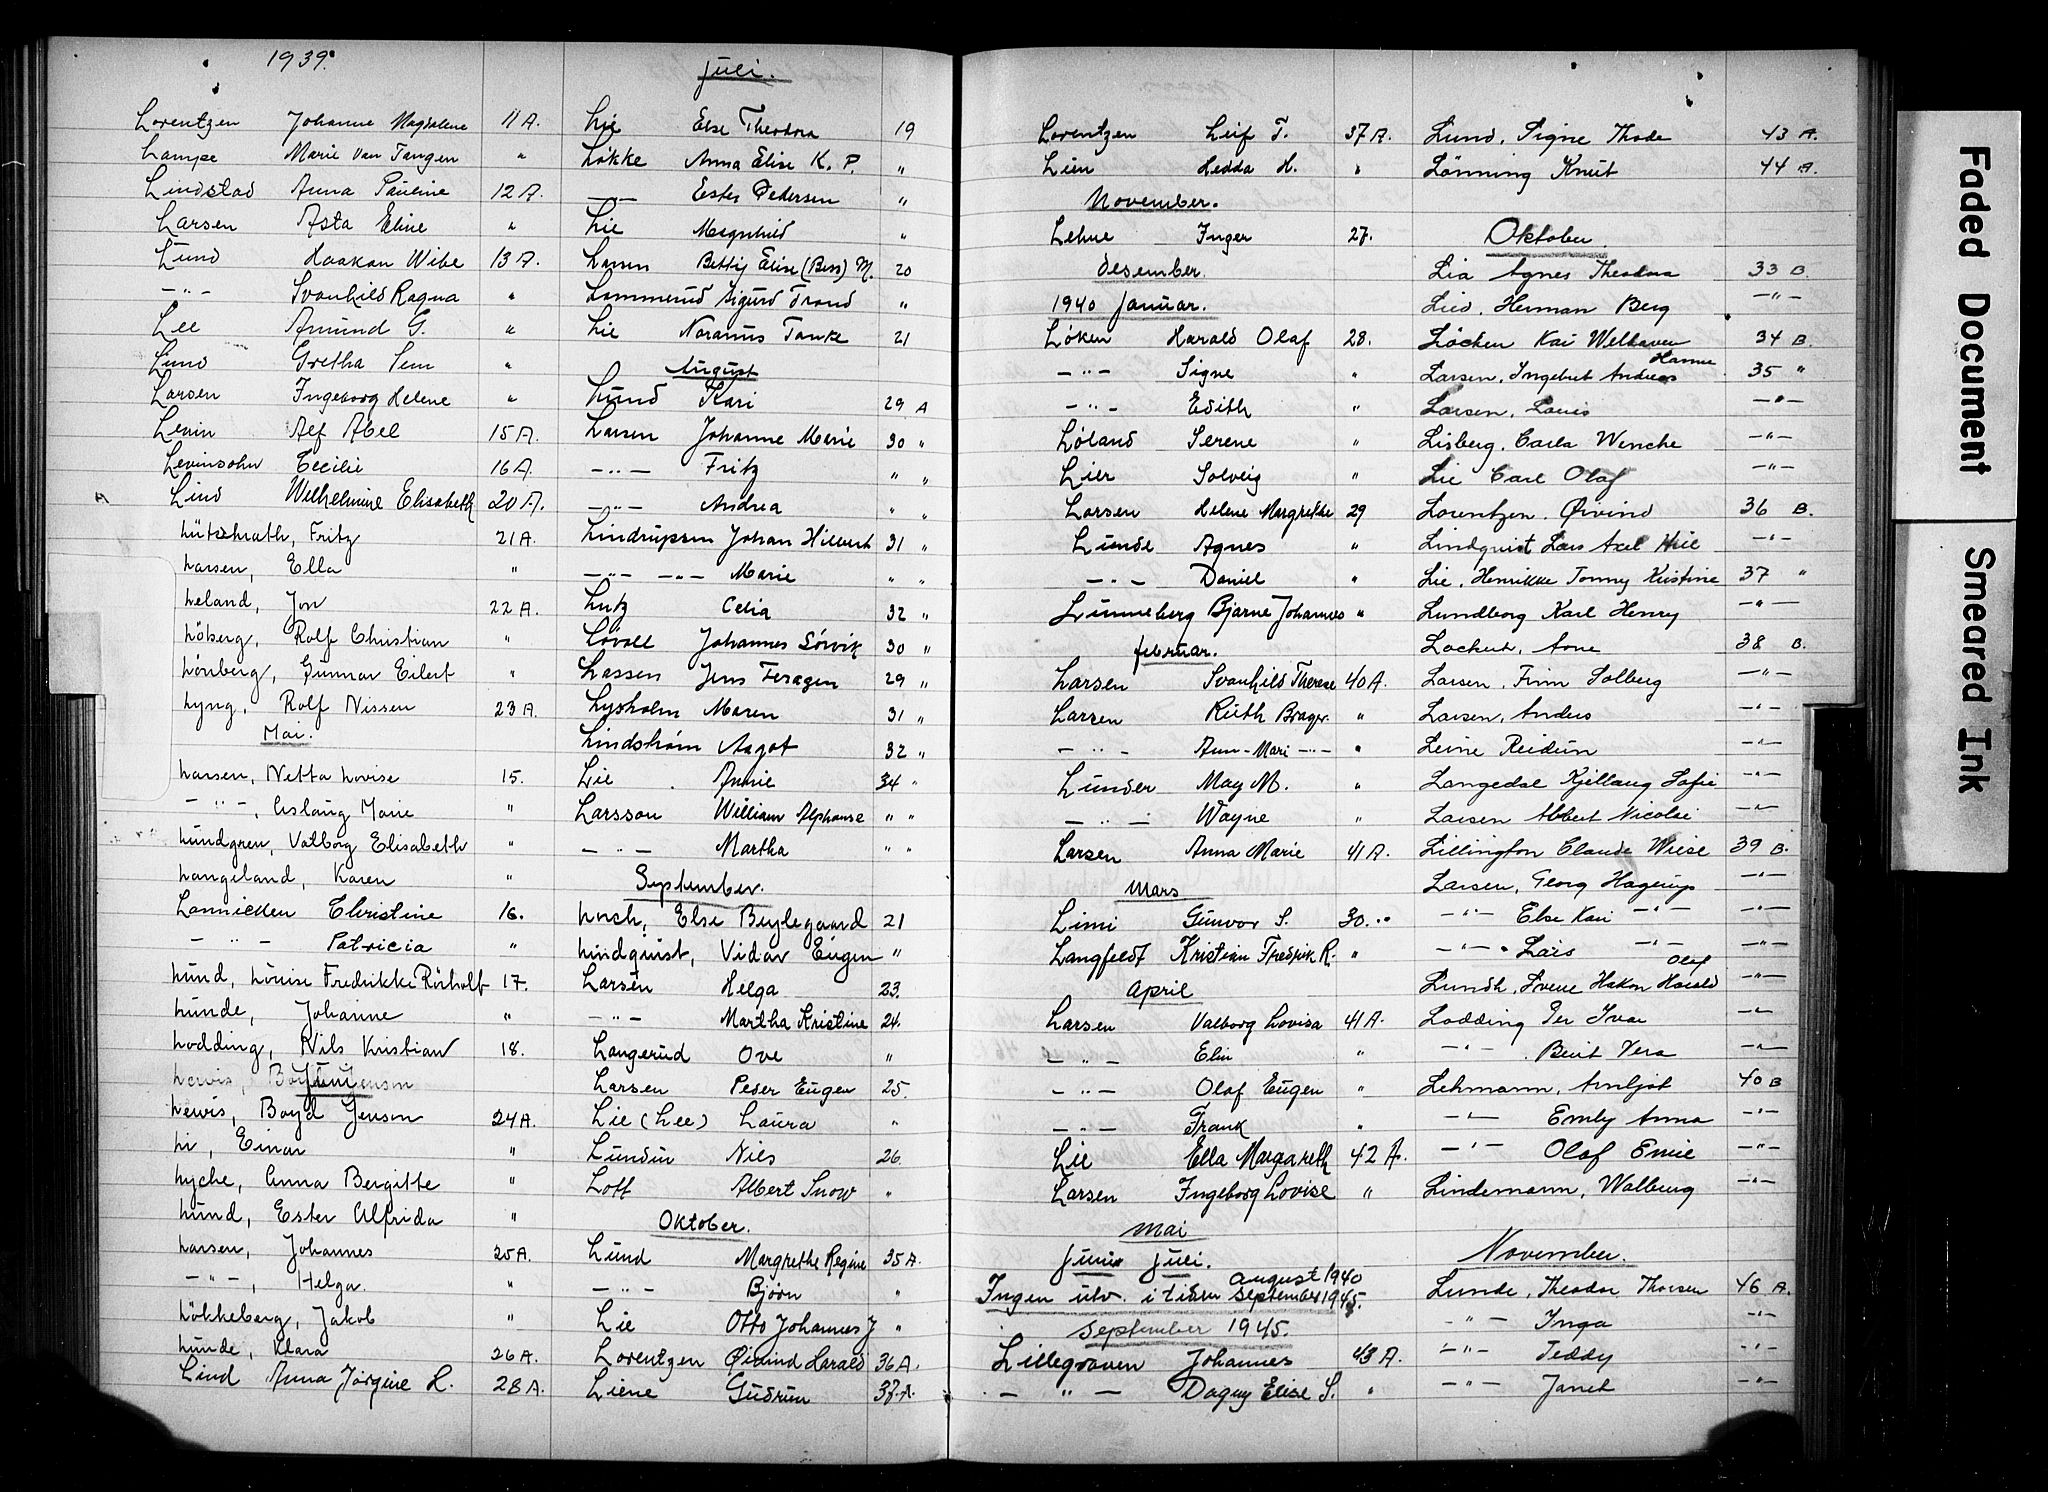 1939.
Lorentzen Johanne Magdalene 11 A.
Lampe Marie van Tangen "
Lindstad Anna Pauline 12 A.
Larsen Asta Eline "
Lund Haakon Wibe 13 A.
-"- Svanhild Ragna "
Lee Amund G. "
Lund Gretha Sem "
Larsen Ingeborg Helene "
Levin Alf Abel 15 A.
Levinsohn Cecilie 16 A.
Lind Wilhelmine Elisabeth 20 A.
Lütschrath, Fritz 21 A.
Larsen, Ella "
Leland, Jon 22 A.
Löberg, Rolf Christian "
Lönberg, Gunnar Eilert "
Lyng, Rolf Nissen 23 A.
Mai.
Larsen, Netta Lovise 15.
-"-, Aslaug Marie "
Lundgren, Valborg Elisabeth "
Langeland, Karen "
Lannicken Christine 16.
-"- Patricia "
Lund, Louise Fredrikke Rörholt 17.
Lunde, Johanne "
Lodding, Nils Kristian 18.
Juni
Lewis, Boyd Jenson 24 A.
Li, Einar "
Lyche, Anna Bergitte "
Lund, Ester Alfrida "
Larsen, Johannes 25 A.
-"-, Helga "
Lökkeberg, Jakob "
Lunde, Klara 26 A.
Lind Anna Jörgine L. 28 A.
Juli.
Lie Else Theodora 19
Løkke Anna Elise K. P. "
-"- Ester Pedersen "
Lie Magnhild "
Larsen Betty Elise (Bess) M. 20
Lommerud Sigurd Trond "
Lie Noranus Tanke 21
August
Lund Kari 29 A
Larsen Johanne Marie 30 "
-"- Fritz " "
-"- Andrea " "
Lindrupsen Johan Hilbert 31 "
-"- -"- Marie " "
Lutz Celia 32 "
Løvoll Johannes Sørvik 30 "
Lassen Jens Feragen 29 "
Lysholm Maren 31 "
Lindstrøm Aagot 32 "
Lie Annie 34 "
Larsson William Alphonse " "
-"- Martha " "
September.
Loch, Else Beylegaard 21
Lindquist, Vidar Eugen "
Larsen Helga 23.
-"- Martha Kristine 24.
Langerud Ove "
Larsen Peder Eugen 25.
Lie (Lee) Laura "
Lundin Nils 26.
Loff Albert Snow "
Oktober.
Lund Margrethe Regine 35 A.
-"- Bjørn "
Lie Otto Johannes J "
Lorentzen Øivind Harald 36 A.
Liene Gudrun 37. A.
Lorentzen Leif T. 37 A.
Lien Hedda H. "
November.
Lehne Inger 27.
Desember.
1940 Januar.
Løken Harald Olaf 28.
-"- Signe "
-"- Edith "
Løland Serene "
Lier Solveig "
Larsen Helene Margrethe 29
Lunde Agnes "
-"- Daniel "
Lunneberg Bjarne Johannes "
februar.
Larsen Svanhild Therese 40 A.
Larsen Ruth Brager. "
-"- Ann-Mari -"- "
Lunder May M. "
-"- Wayne "
Larsen Anna Marie 41 A.
Mars
Limi Gunvor S. 30.
Langfeldt Kristian Fredrik R. "
April
Larsen Valborg Lovisa 41 A.
-"- Elin "
-"- Olaf Eugen "
-"- Frank "
Lie Ella Margareth 42 A.
Larsen Ingeborg Lovise "
Mai
Juni Juli.
august 1940
Ingen utv. i tiden september 1945.
September 1945.
Lillegraven Johannes 43 A.
-"- Dagny Elise S. "
Lund, Signe Thode 43 A.
Lønning Knut 44 A.
Oktober.
Lia Agnes Theodora 33 B.
Lied, Herman Berg -"-
Løchen Kai Welhaven 34 B.
Hanna
Larsen, Ingebret Andreas 35 "
Larsen, Louis -"-
Lisberg, Carla Wenche -"-
Lie Carl Olaf -"-
Lorentzen, Øivind 36 B.
Lindquist Lars Axel Hil -"-
Lie, Henrikke Tonny Kristine 37 "
Lundborg Karl Henry -"-
Lockert, Arne 38 B.
Larsen, Finn Solberg -"-
Larsen, Anders -"-
Leine Reidun -"-
Langedal Kjellaug Sofie -"-
Larsen Albert Nicolai -"-
Lillington Claude Wiese 39 B.
Larsen, Georg Hagerup -"-
-"- Else Kari -"- -"-
-"- Lais -"- -"-
Olaf
Lundh, Sverre Hakon Harald -"-
Lodding Per Ivar -"-
-"- Berit Vera -"-
Lehmann, Arnljot 40 B
-"- Emly Anna -"-
-"- Olaf Emil -"-
Lindemann, Walburg -"-
November.
Lunde, Theodor Thorsen 46 A.
-"- Inga -"-
-"- Teddy -"-
-"- Janet -"-
Faded Document
Smeared Ink